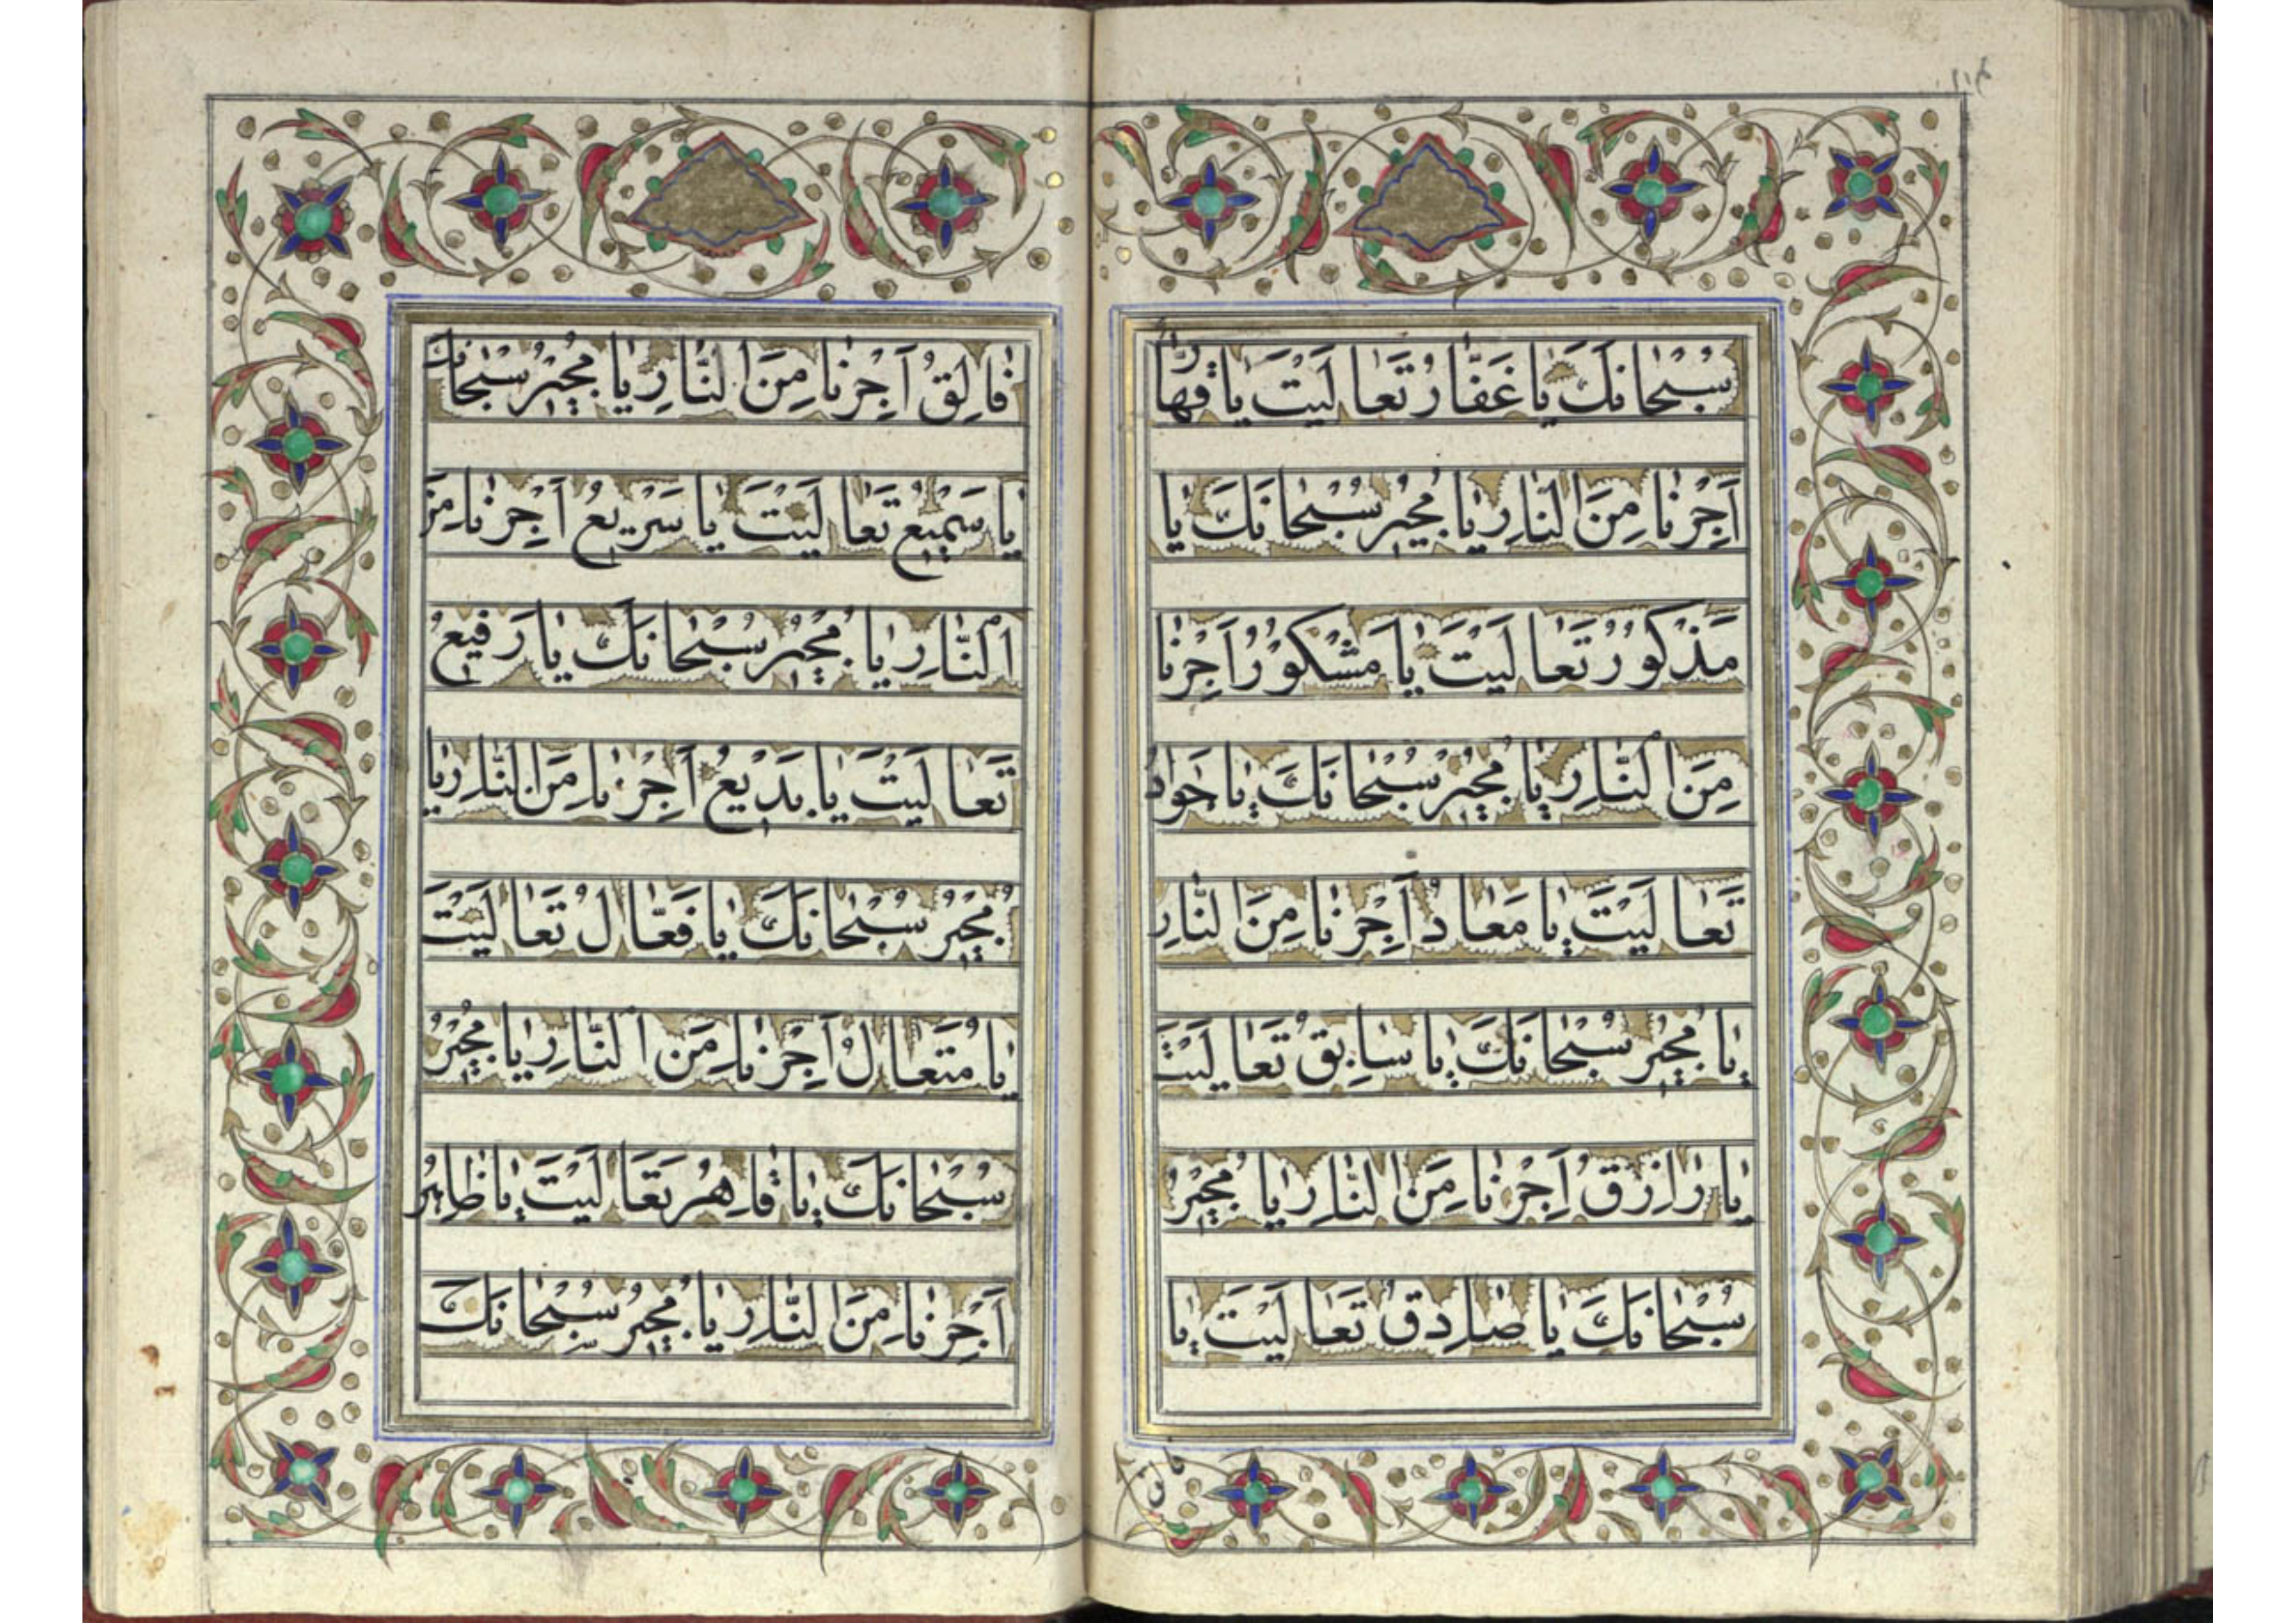 سُبْحانَكَ يا غَفّارُ تَعالَيْتَ يا قَهّارُ
اَجِرْنا مِنَ النّارِ يا مُجيرُ سُبْحانَكَ يا
مَذْكُورُ تَعالَيْتَ يا مَشْكُورُ اَجِرْنا
مِنَ النّارِ يا مُجيرُ سُبْحانَكَ يا جَوادُ
تَعالَيْتَ يا مَعادُ اَجِرْنا مِنَ النّارِ
يا مُجيرُ سُبْحانَكَ يا سابِقُ تَعالَيْتَ
يا رازِقُ اَجِرْنا مِنَ النّارِ يا مُجيرُ
سُبْحانَكَ يا صادِقُ تَعالَيْتَ يا
فالق
فالِقُ اَجِرْنا مِنَ النّارِ يا مُجيرُ سُبْحانَكَ
يا سَميعُ تَعالَيْتَ يا سَريعُ اَجِرْنا مِنَ
النّارِ يا مُجيرُ سُبْحانَكَ يا رَفيعُ
تَعالَيْتَ يا بَديعُ اَجِرْنا مِنَ النّارِ يا
مُجيرُ سُبْحانَكَ يا فَعّالُ تَعالَيْتَ
يا مُتَعالُ اَجِرْنا مِنَ النّارِ يا مُجيرُ
سُبْحانَكَ يا قاهِرُ تَعالَيْتَ يا طاهِرُ
اَجِرْنا مِنَ النّارِ يا مُجيرُ سُبْحانَكَ